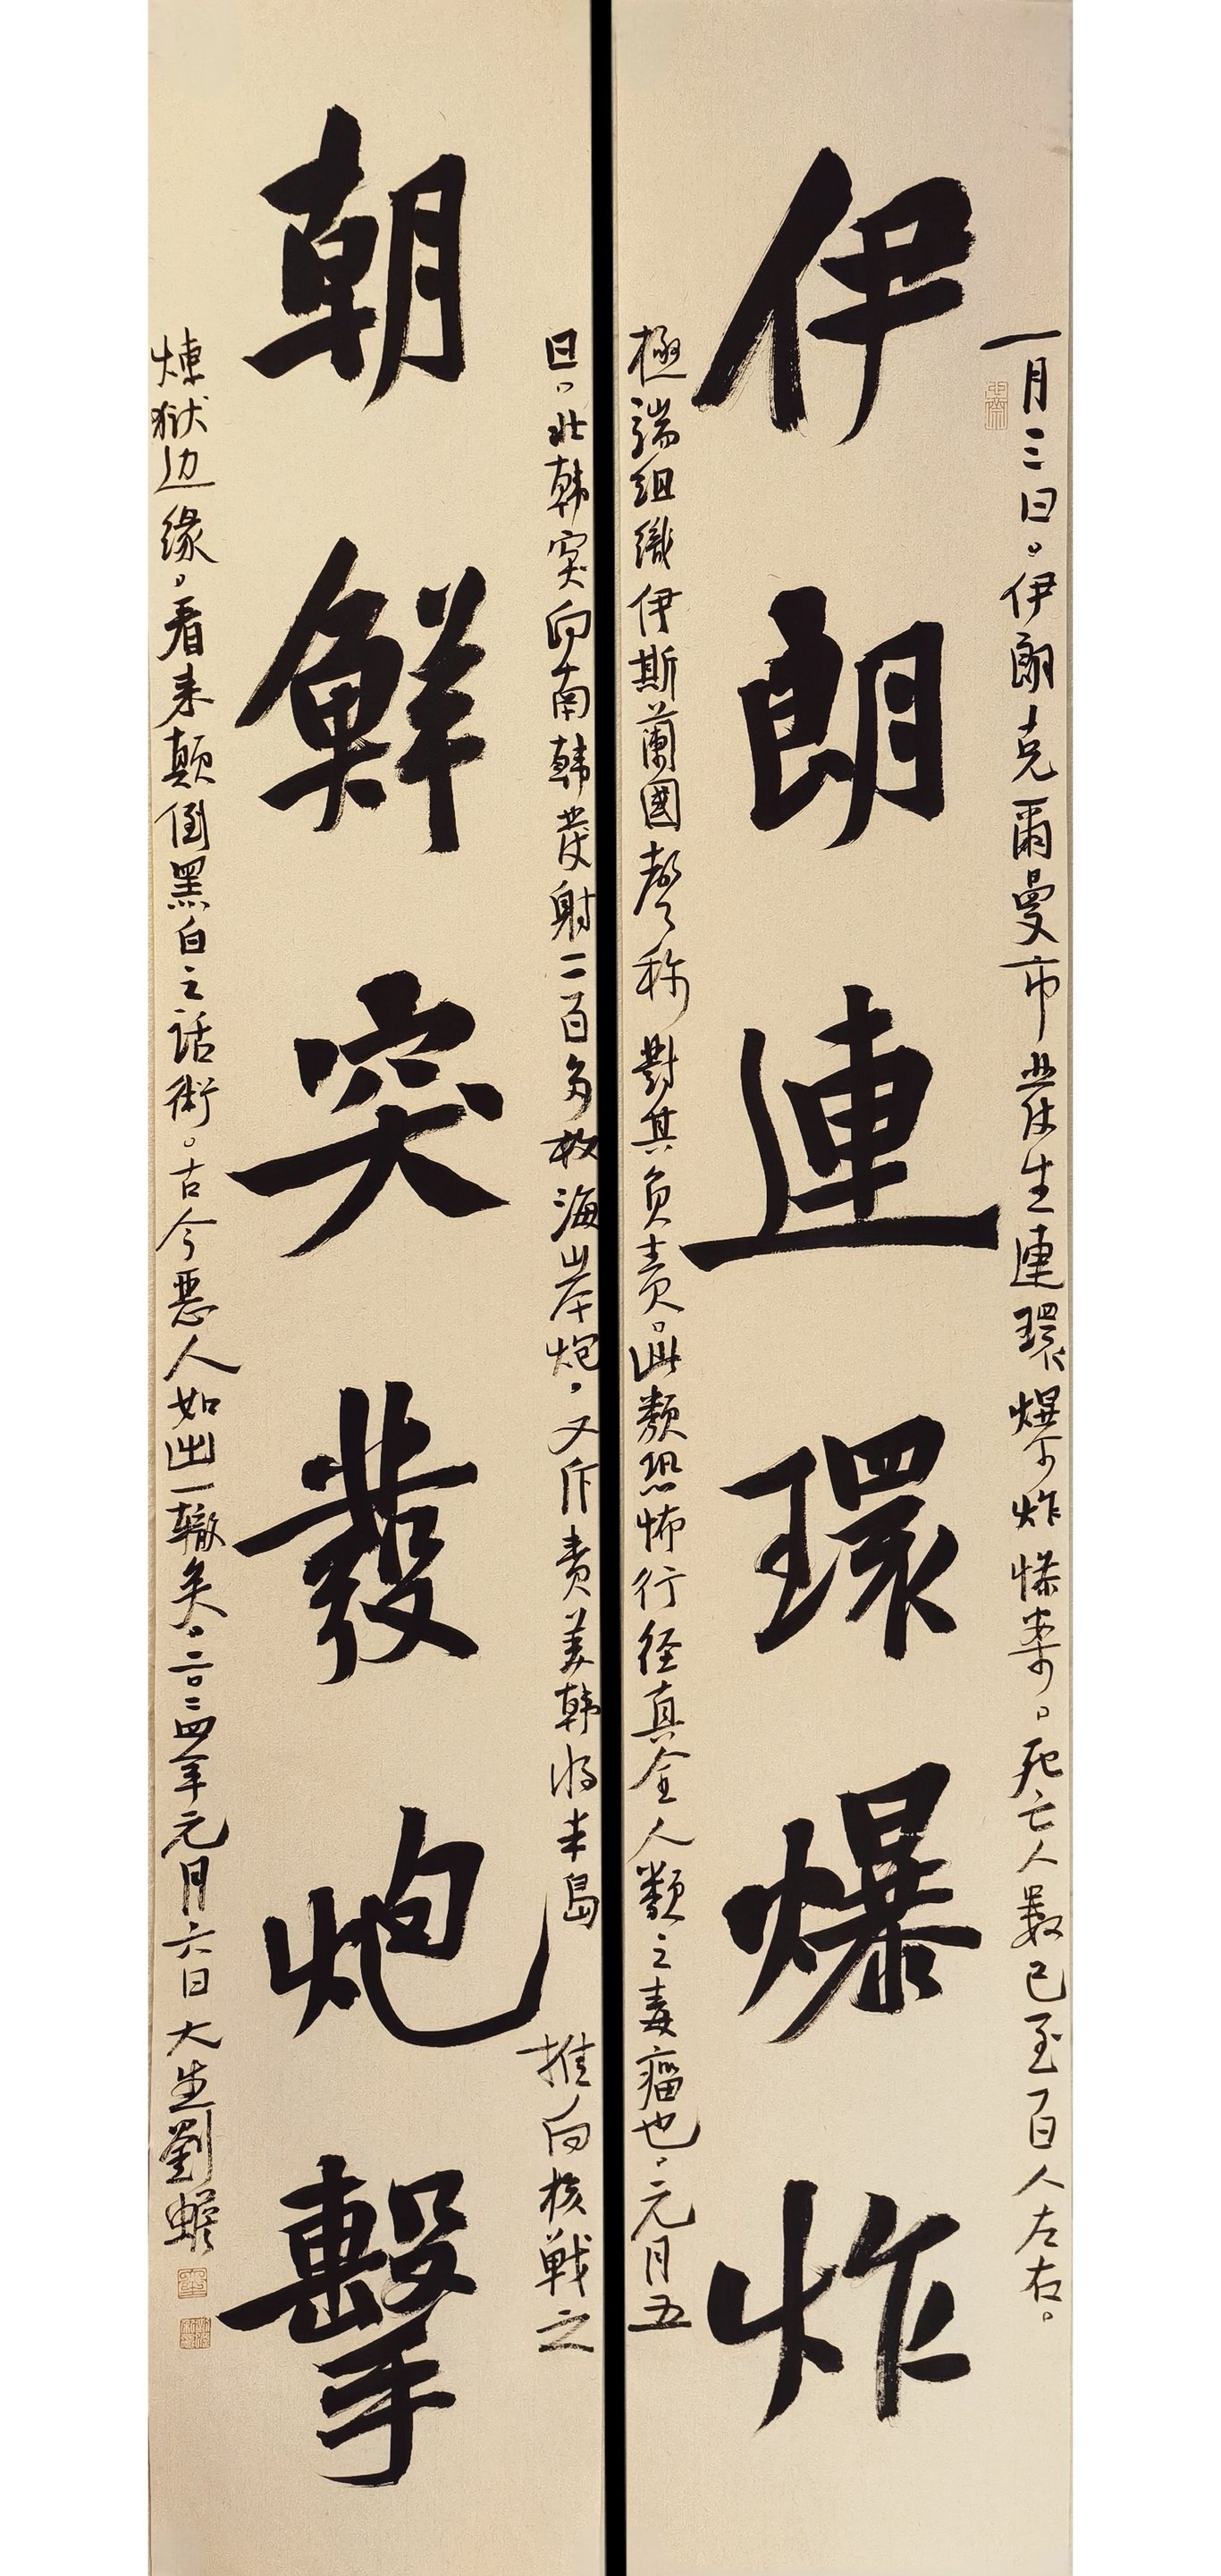 伊朗連環爆炸
一月三日。伊朗克爾曼市發生連環爆炸惨案。死亡人數已至百人左右。
極端組織伊斯蘭國聲称對其负责。此類恐怖行径真全人類之毒瘤也。元月五
朝鮮突發炮擊
日。北韩突向南韩發射二百多枚海岸炮。又斥责美韩将半島推向核戦之
煉狱边缘。看来颠倒黑白之話術。古今惡人如出一轍矣。二〇二四年元月六日大生劉蟾